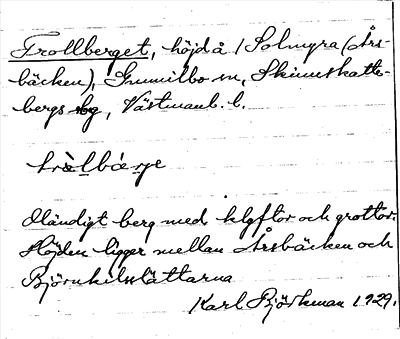 Trollberget, höjd å / Solmyra (Års-
bäcken), Gunnilbo sn, Skinnskatte-
bergs bg, Västmanl. l.
tròlbǽrje
Mändigt berg med klyftor och grottor.
Höjden ligger mellan Årsbäcken och
Björnkilsslåttarna
Karl Björkman 1929.